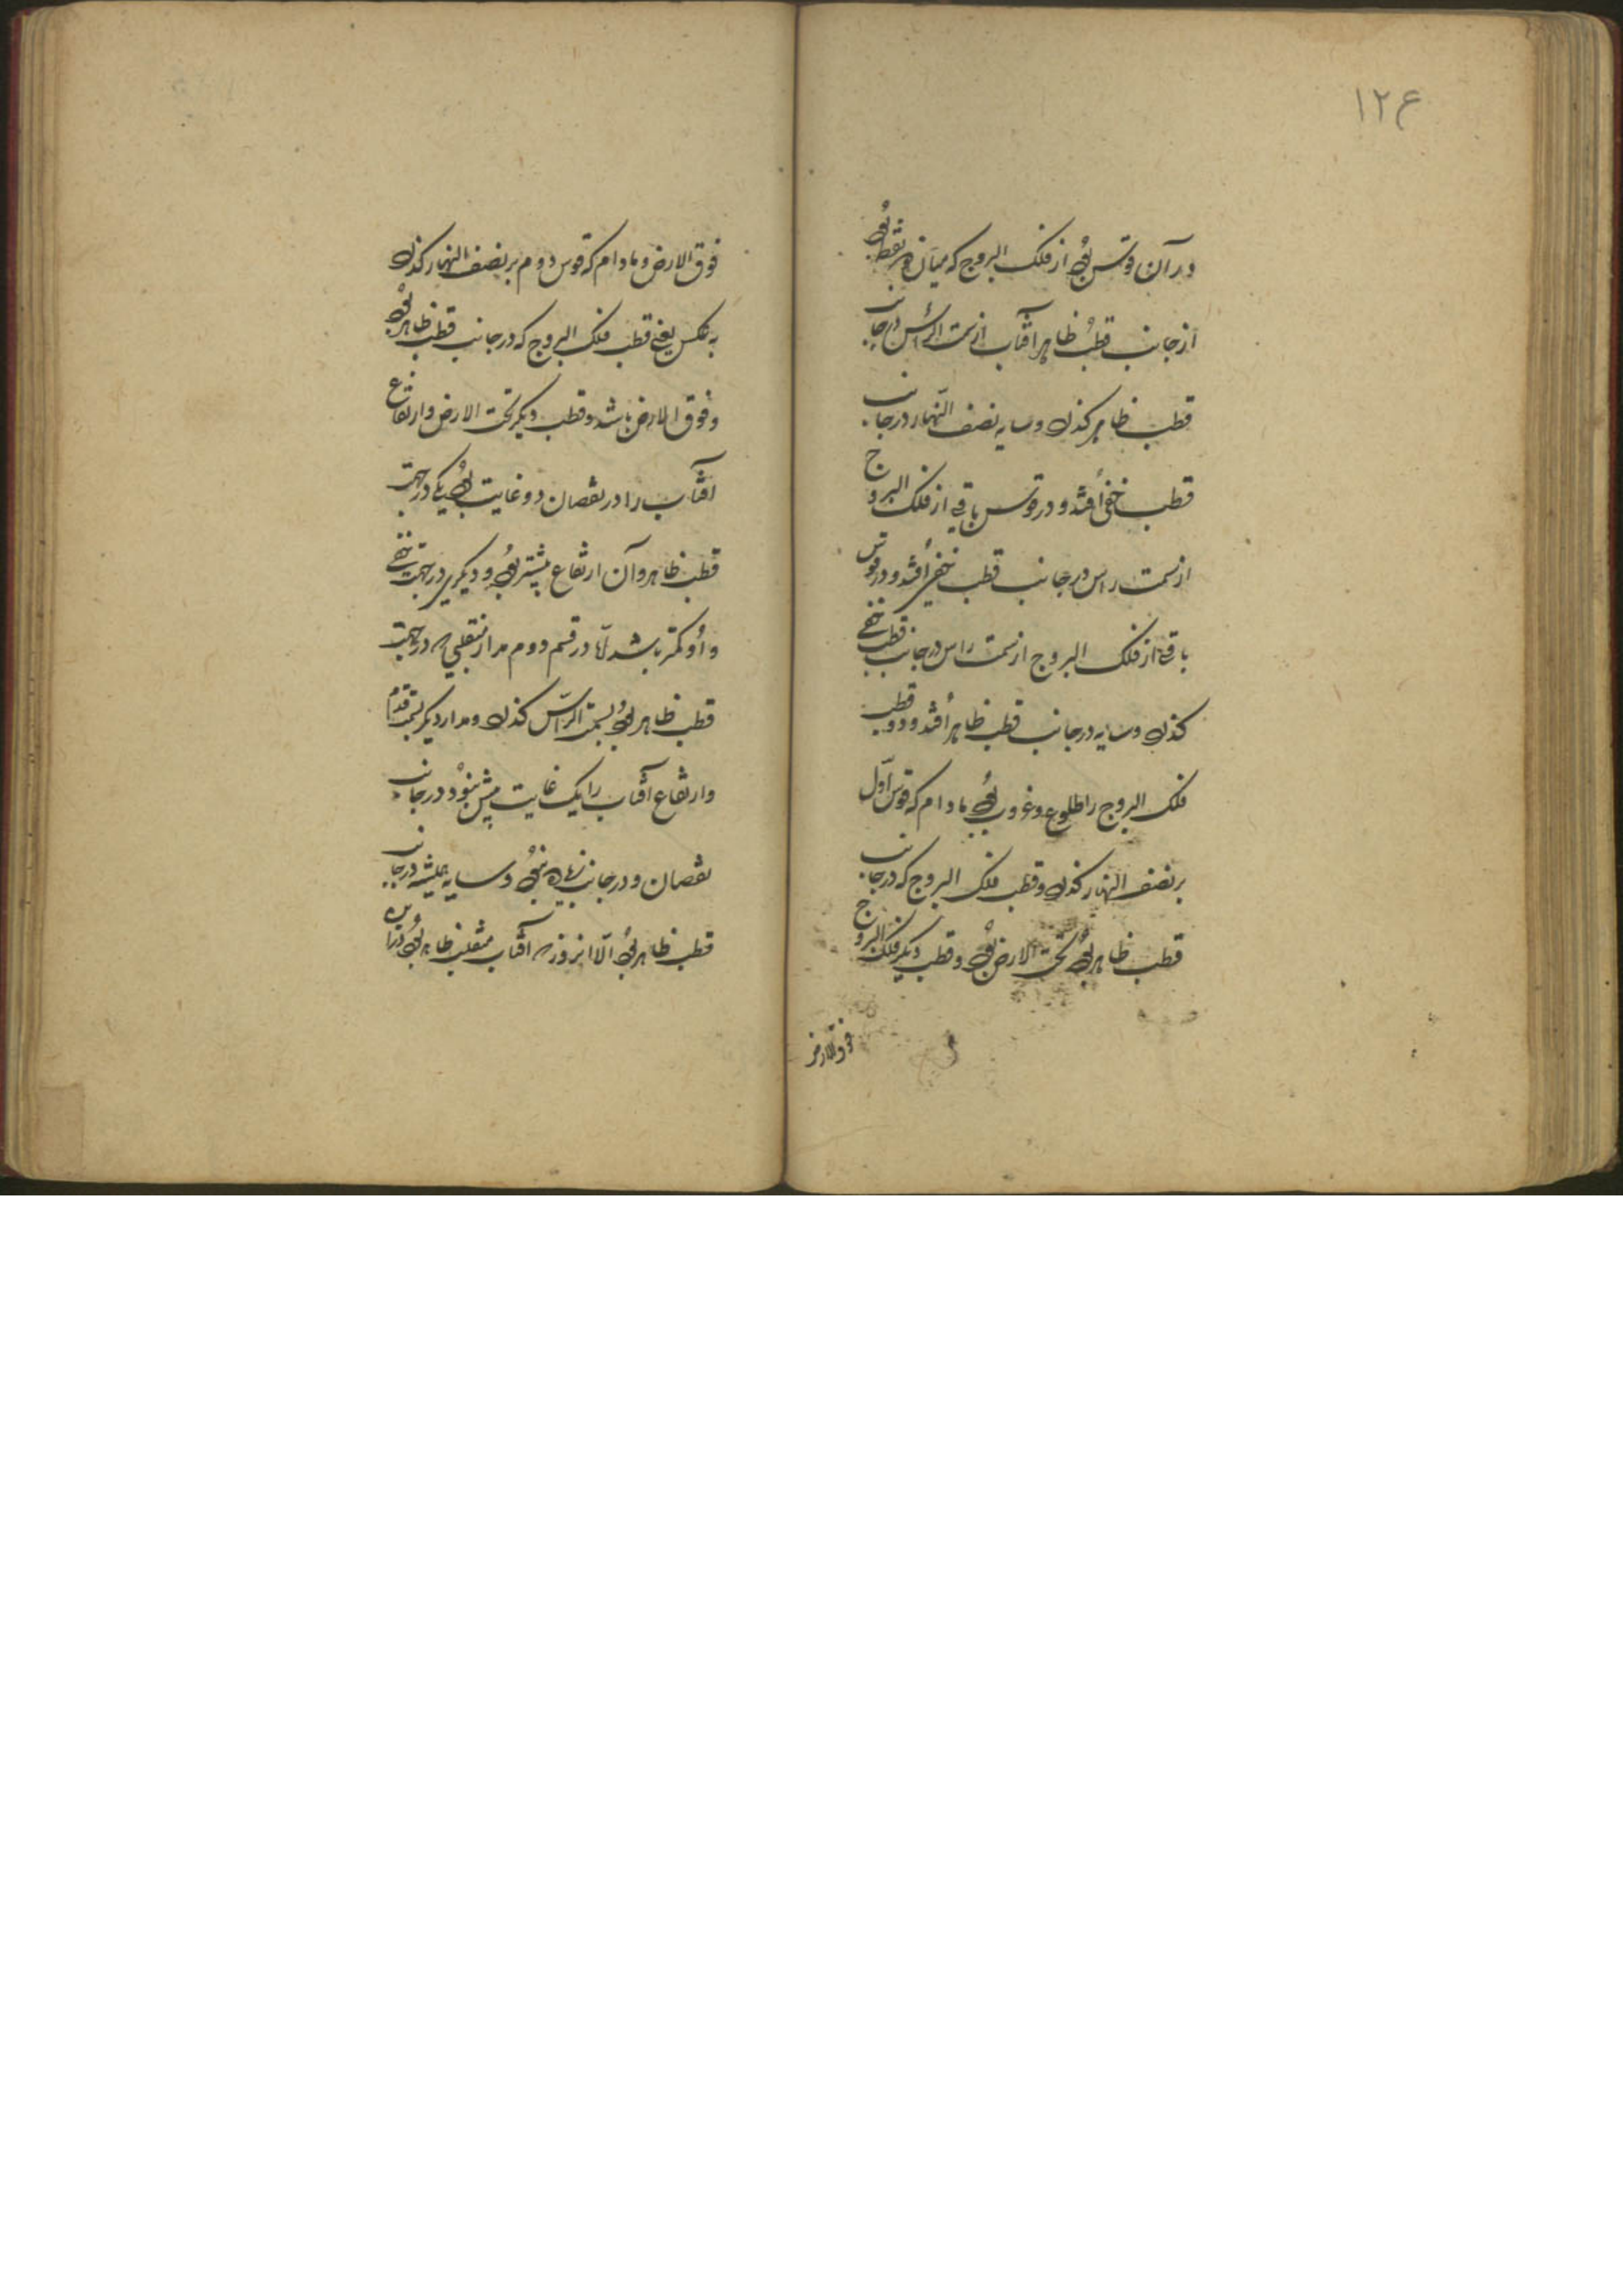 ۱۲۶
در آن قوس بود از فلک البروج که میان دو نقطه بود
از جانب قطب ظاهر آفتاب از سمت الرأس در جانب
قطب ظاهر کذرد و سایه نصف النهار در جانب
قطب خفی افتد و در قوس باقی از فلک البروج
از سمت راس در جانب قطب خفی افتد و در قوس
باقی از فلک البروج از سمت راس در جانب قطب خفی
کذرد و سایه در جانب قطب ظاهر افتد و دو قطب
فلک البروج را طلوع و غروب بود مادام که قوس اول
بر نصف النهار کذرد و قطب فلک البروج که در جانب
قطب ظاهر بود تحت الارض بود و قطب دیکر فلک البروج
فوق الارض
فوق الارض و مادام که قوس دوم بر نصف النهار کذرد
به عکس یعنی قطب فلک البروج که در جانب قطب ظاهر بود
و فوق الارض باشد و قطب دیکر تحت الارض و ارتفاع
آفتاب را در نقصان دو غایت بود یکی در جهت
قطب ظاهر و آن ارتفاع بیشتر بود و دیکری در جهت خفی
و او کمتر باشد اما در قسم دوم مدار منقلبی که در جهت
قطب ظاهر بود بسمت الرأس کذرد و مدار دیکر بسمت قدم
و ارتفاع آفتاب را یک غایت بیش نبود در جانب
نقصان و در جانب زیاده نبود و سایه همیشه در جانب
قطب ظاهر بود الا آنروز که آفتاب منقلب ظاهر بود